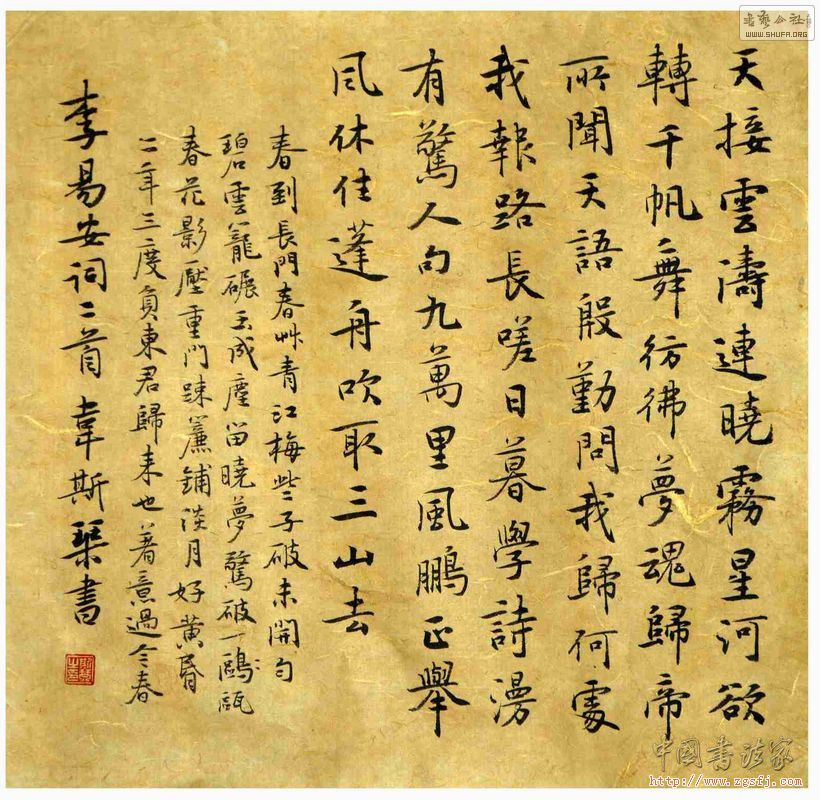 天接雲濤連曉霧星河欲
轉千帆舞彷彿夢魂歸帝
所聞天語殷勤問我歸何處
我報路長嗟日暮學詩漫
有驚人句九萬里風鵬正舉
風休住蓬舟吹取三山去
春到長門春艸青江梅些子破未開勻
碧雲籠碾玉成塵留曉夢驚破一鷗甌
春花影壓重門踈簾鋪淡月好黃昏
二年三度負東君歸來也著意過今春
李易安詞二首韋斯琴書
書藝公社
WWW.SHUFA.ORG
中國書法家
http://www.zgsfj.com